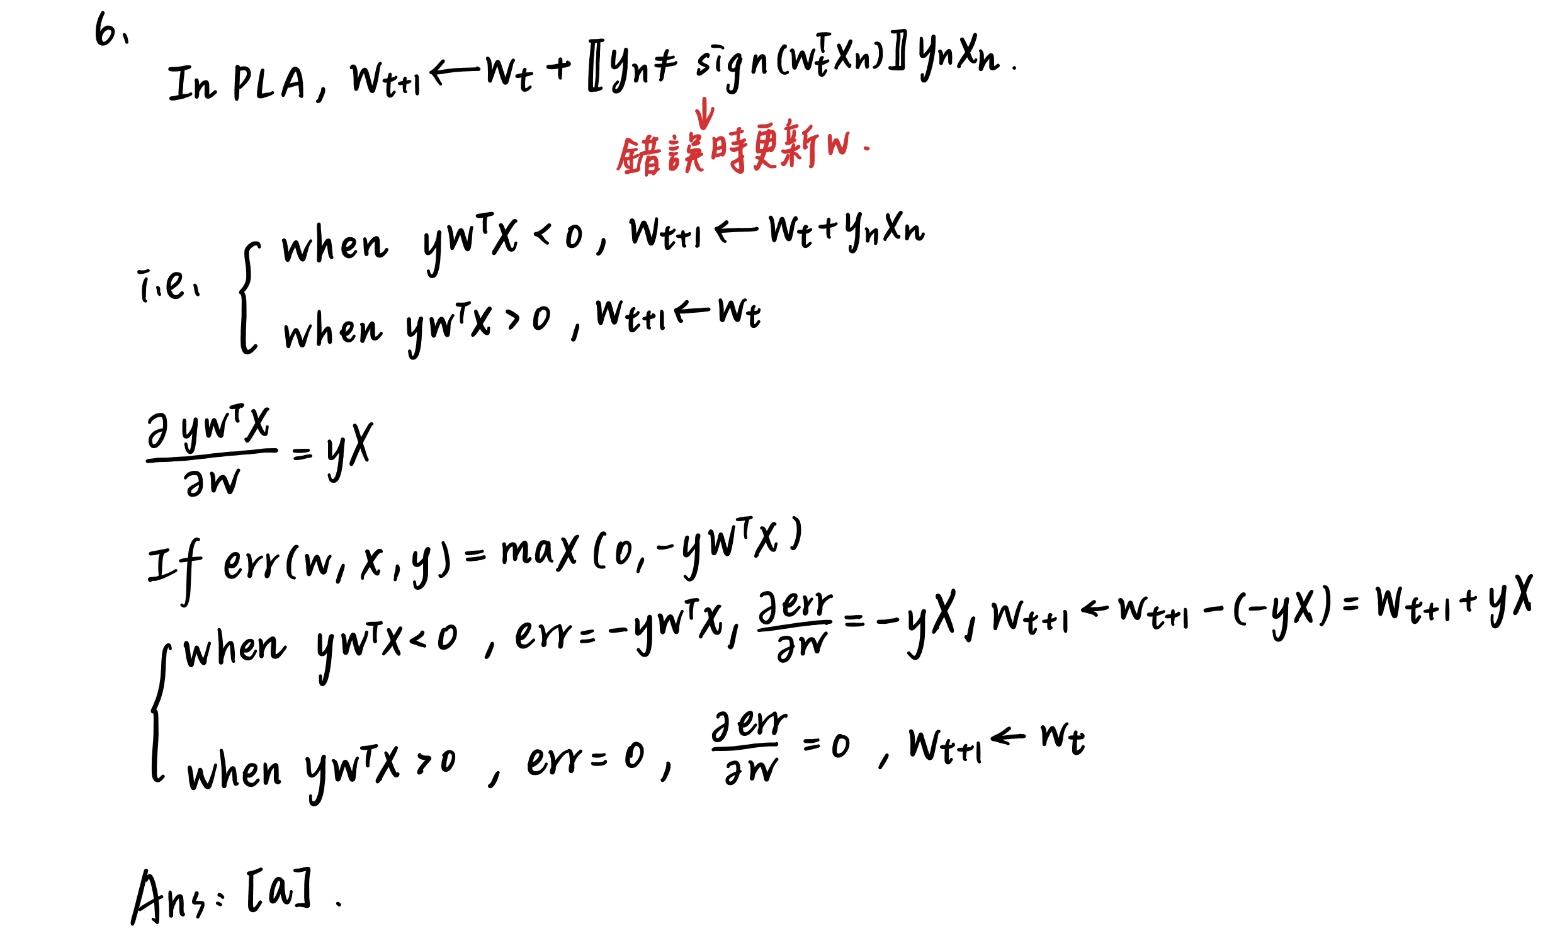 6.
In PLA, W_{t+1} ← W_t + ⟦y_n ≠ sign(w_t^T x_n)⟧ y_n x_n .
↓
錯誤時更新 w .
i.e. { when yw^Tx < 0 , W_{t+1} ← W_t + y_n x_n
when yw^Tx > 0 , W_{t+1} ← W_t
∂ yw^Tx / ∂w = yx
If err(w, x, y) = max (0, -yw^Tx)
{ when yw^Tx < 0 , err = -yw^Tx, ∂err / ∂w = -yx, W_{t+1} ← W_{t+1} - (-yx) = W_{t+1} + yx
when yw^Tx > 0 , err = 0 , ∂err / ∂w = 0 , W_{t+1} ← W_t
Ans: [a] .